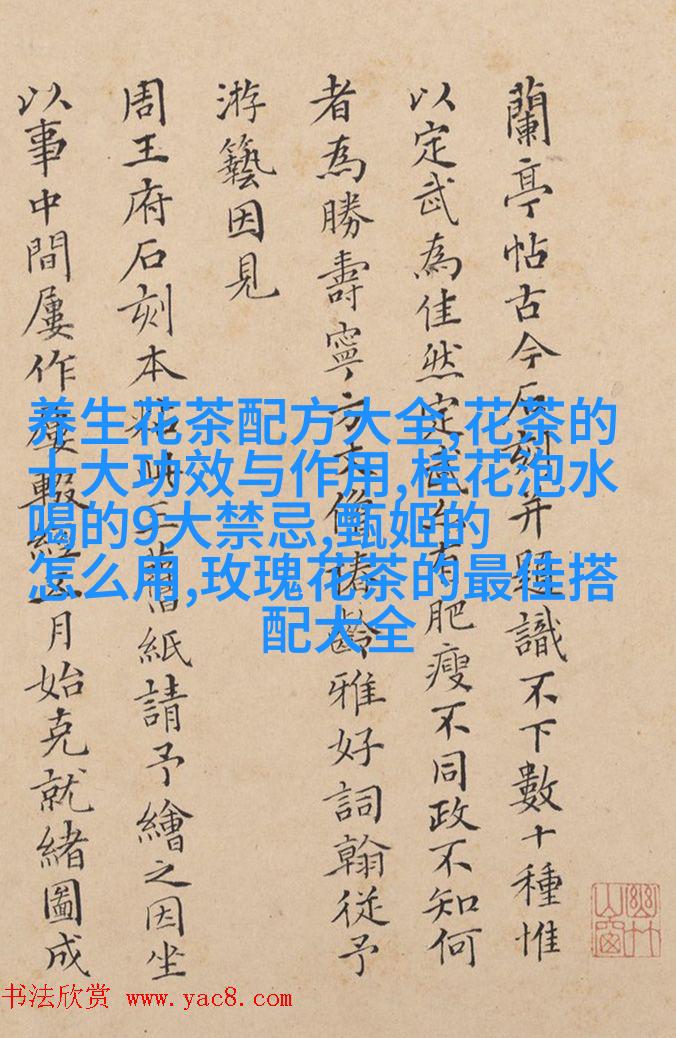 蘭亭帖古今石刻并題識不下數十種惟
以定武為佳然定武有肥瘦不同政不知何
者為勝壽寧方齡雅好詞翰從予
游藝因見
周王府石刻本舊紙請予繪之因坐
以事中間屢作屢輟經月始克就緒圖成
幽竹山窗
养生花茶配方大全,花茶的
十大功效与作用,桂花泡水
喝的9大禁忌,甄姬的
怎么用,玫瑰花茶的最佳搭
配大全
书法欣赏 www.yac8.com